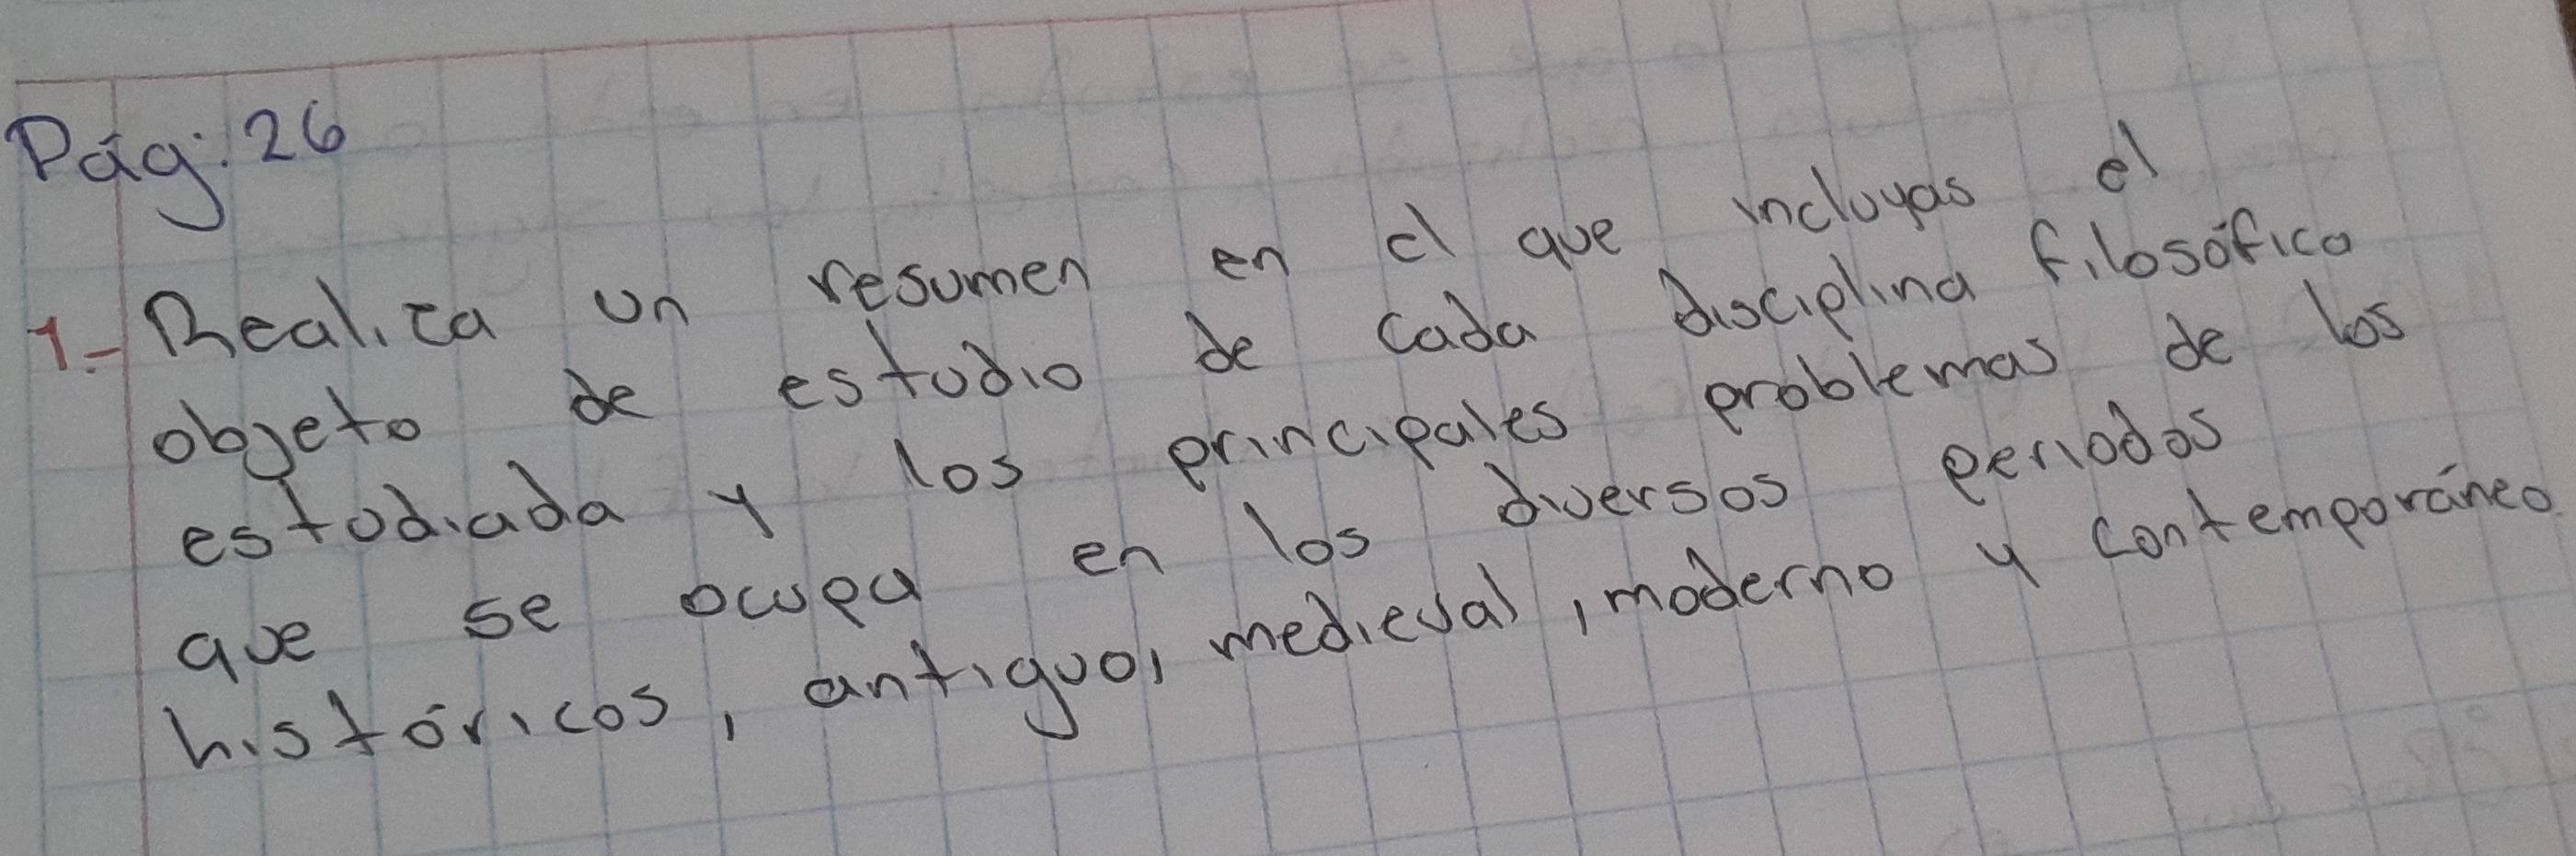 Pág: 26
1.- Realiza un resumen en el que incluyas el
objeto de estudio de cada disciplina filosófica
estudiada y los principales problemas de los
que se ocupa en los diversos periodos
históricos, antiguo, medieval, moderno y contemporáneo.